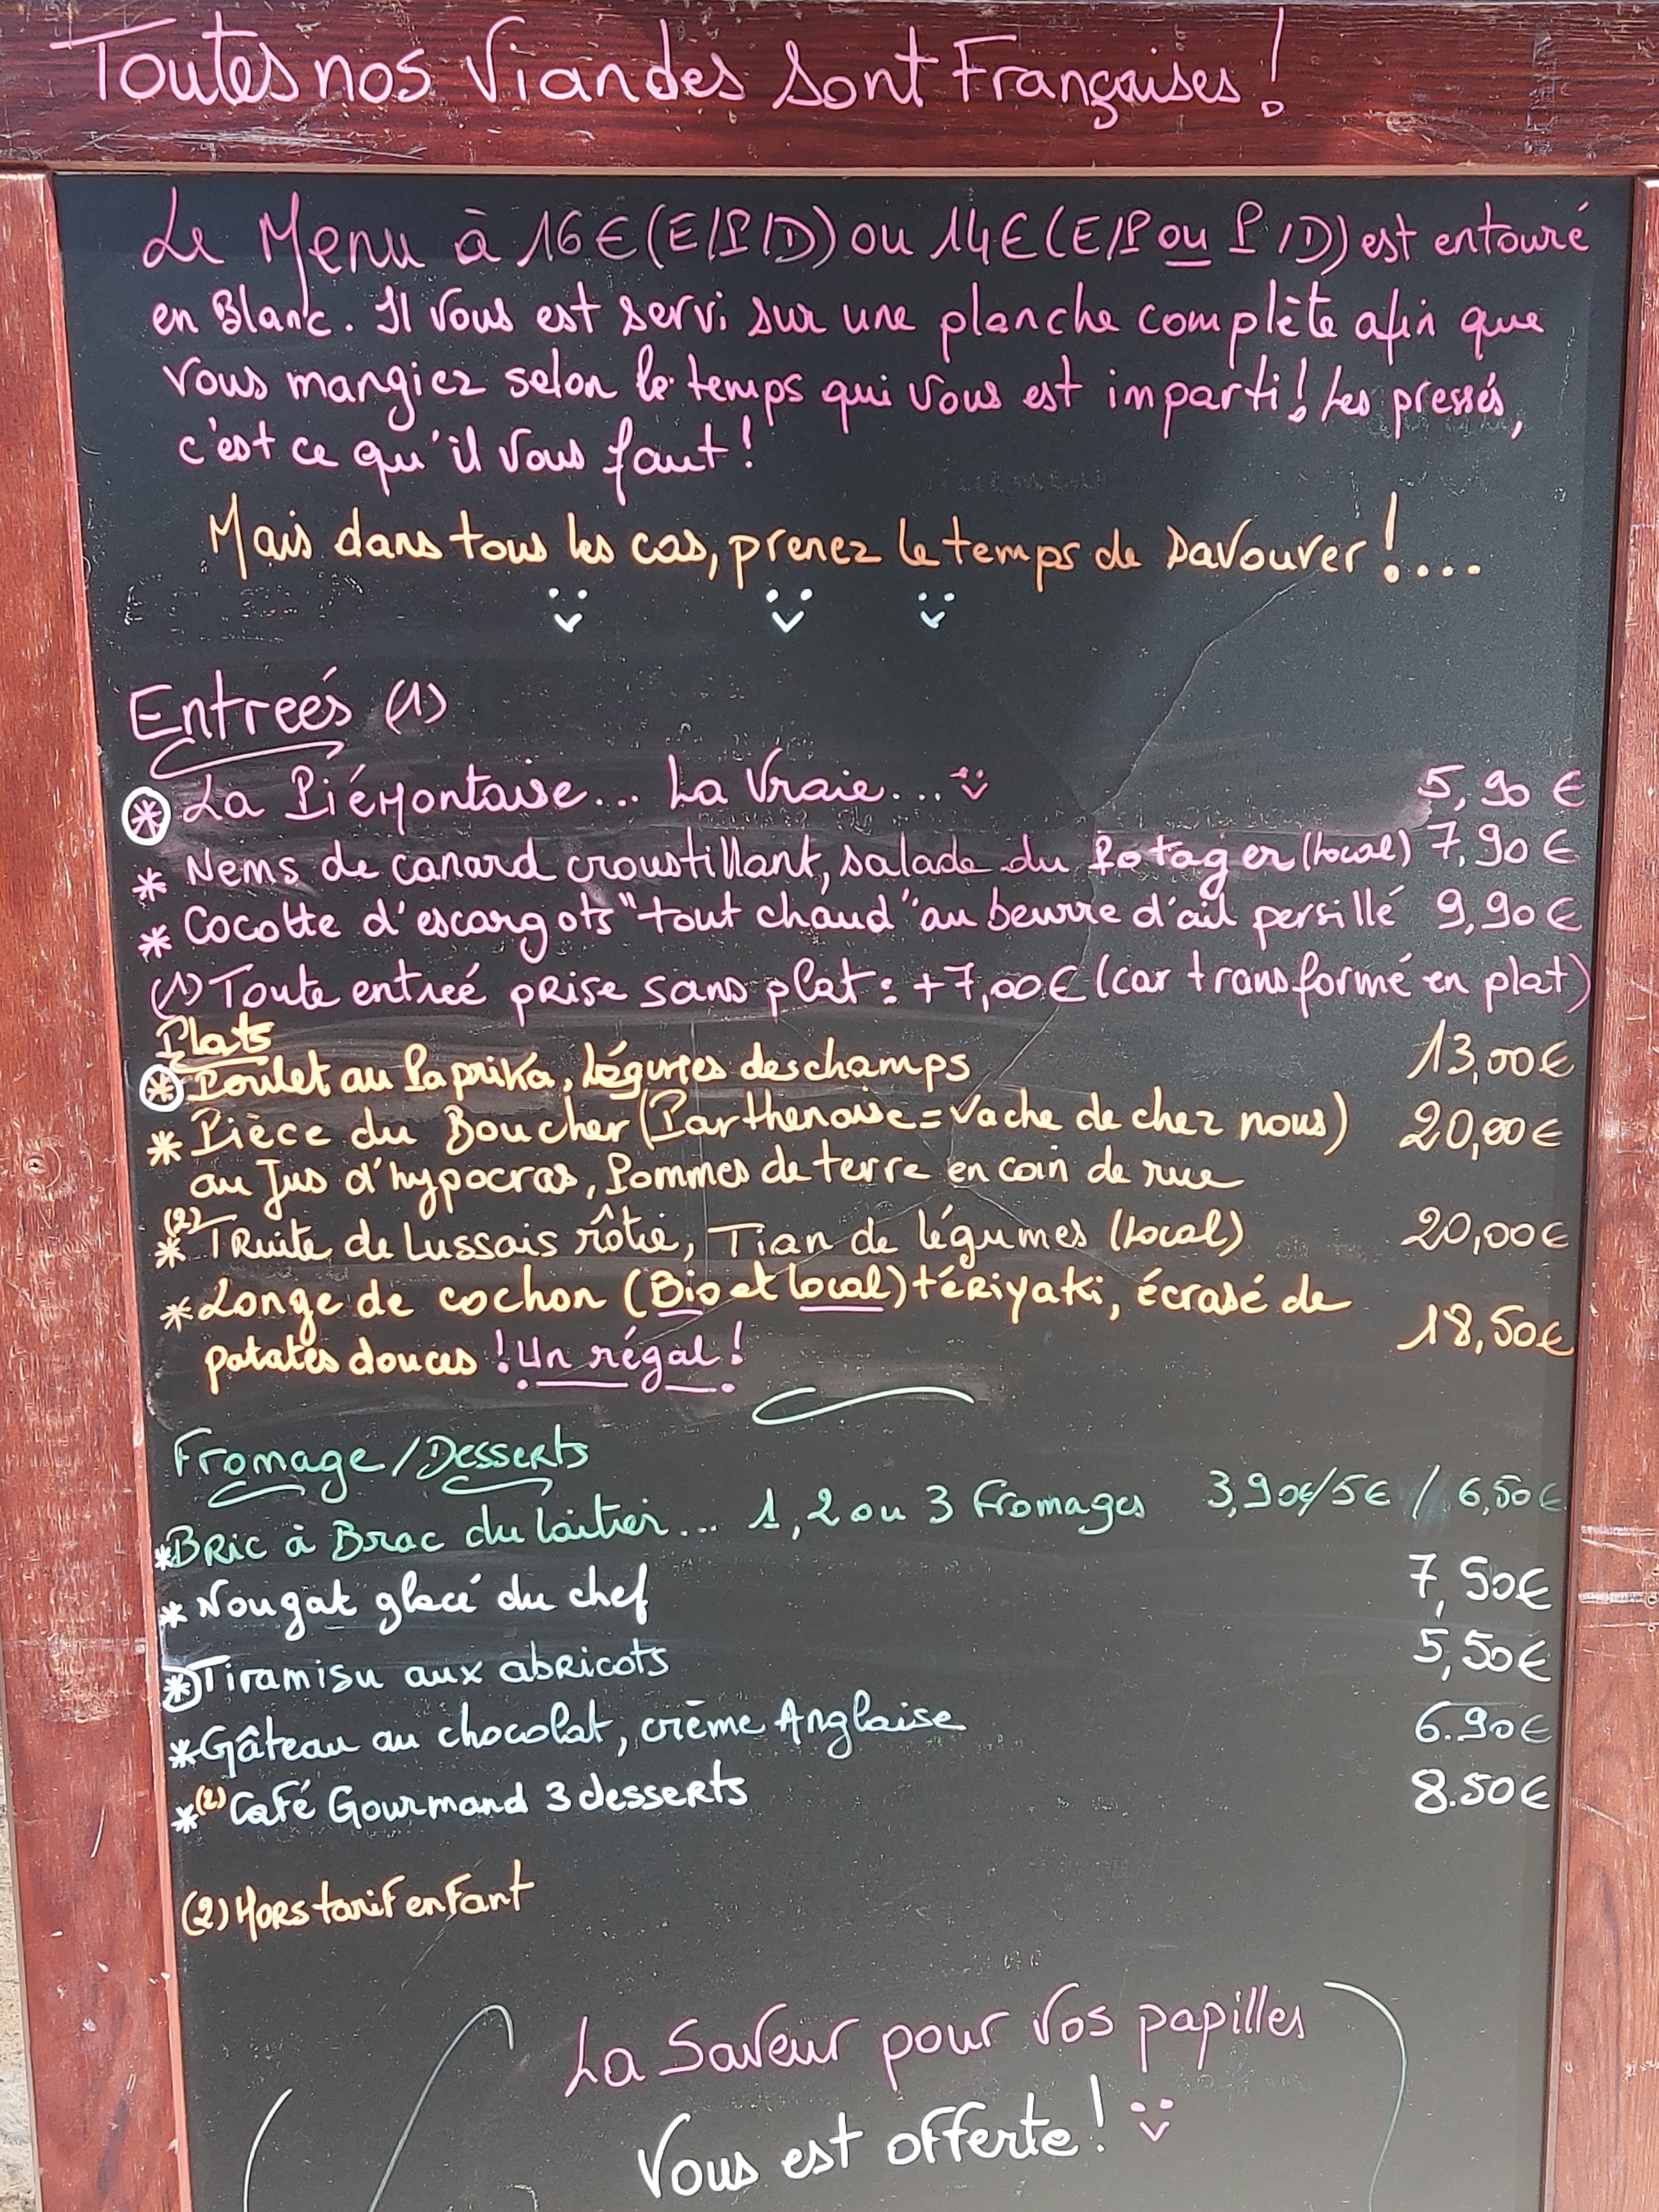 Toutes nos Viandes sont Françaises !
Le Menu à 16€ (E/P/D) ou 14€ (E/P ou P/D) est entouré
en Blanc. Il vous est servi sur une planche complète afin que
vous mangiez selon le temps qui vous est imparti ! Les pressés,
c'est ce qu'il vous faut !
Mais dans tous les cas, prenez le temps de savourer !....
Entreés (1)
* La Piémontaise... La Vraie... 5,90 €
* Nems de canard croustillant, salade du Potager (Local) 7,90 €
* Cocotte d'escargots "tout chaud" au beurre d'ail persillé 9,90 €
(1) Toute entreé prise sans plat : +7,00€ (car transformé en plat)
Plats
* Poulet au Paprika, légumes des champs 13,00€
* Pièce du Boucher (Parthenaise = Vache de chez nous) 20,00€
au Jus d'hypocras, Pommes de terre en coin de rue
(2) * Truite de Lussais rôtie, Tian de légumes (Local) 20,00€
* Longe de cochon (Bio et local) tériyaki, écrasé de
patates douces ! Un régal ! 18,50€
Fromage/Desserts
* Bric à Brac du laitier... 1, 2 ou 3 Fromages 3,90€/5€ / 6,50€
* Nougat glacé du chef 7,50€
* Tiramisu aux abricots 5,50€
* Gâteau au chocolat, crème Anglaise 6.90€
* (2) Café Gourmand 3 desserts 8.50€
(2) Hors tarif enfant
La Saveur pour vos papilles
Vous est offerte !